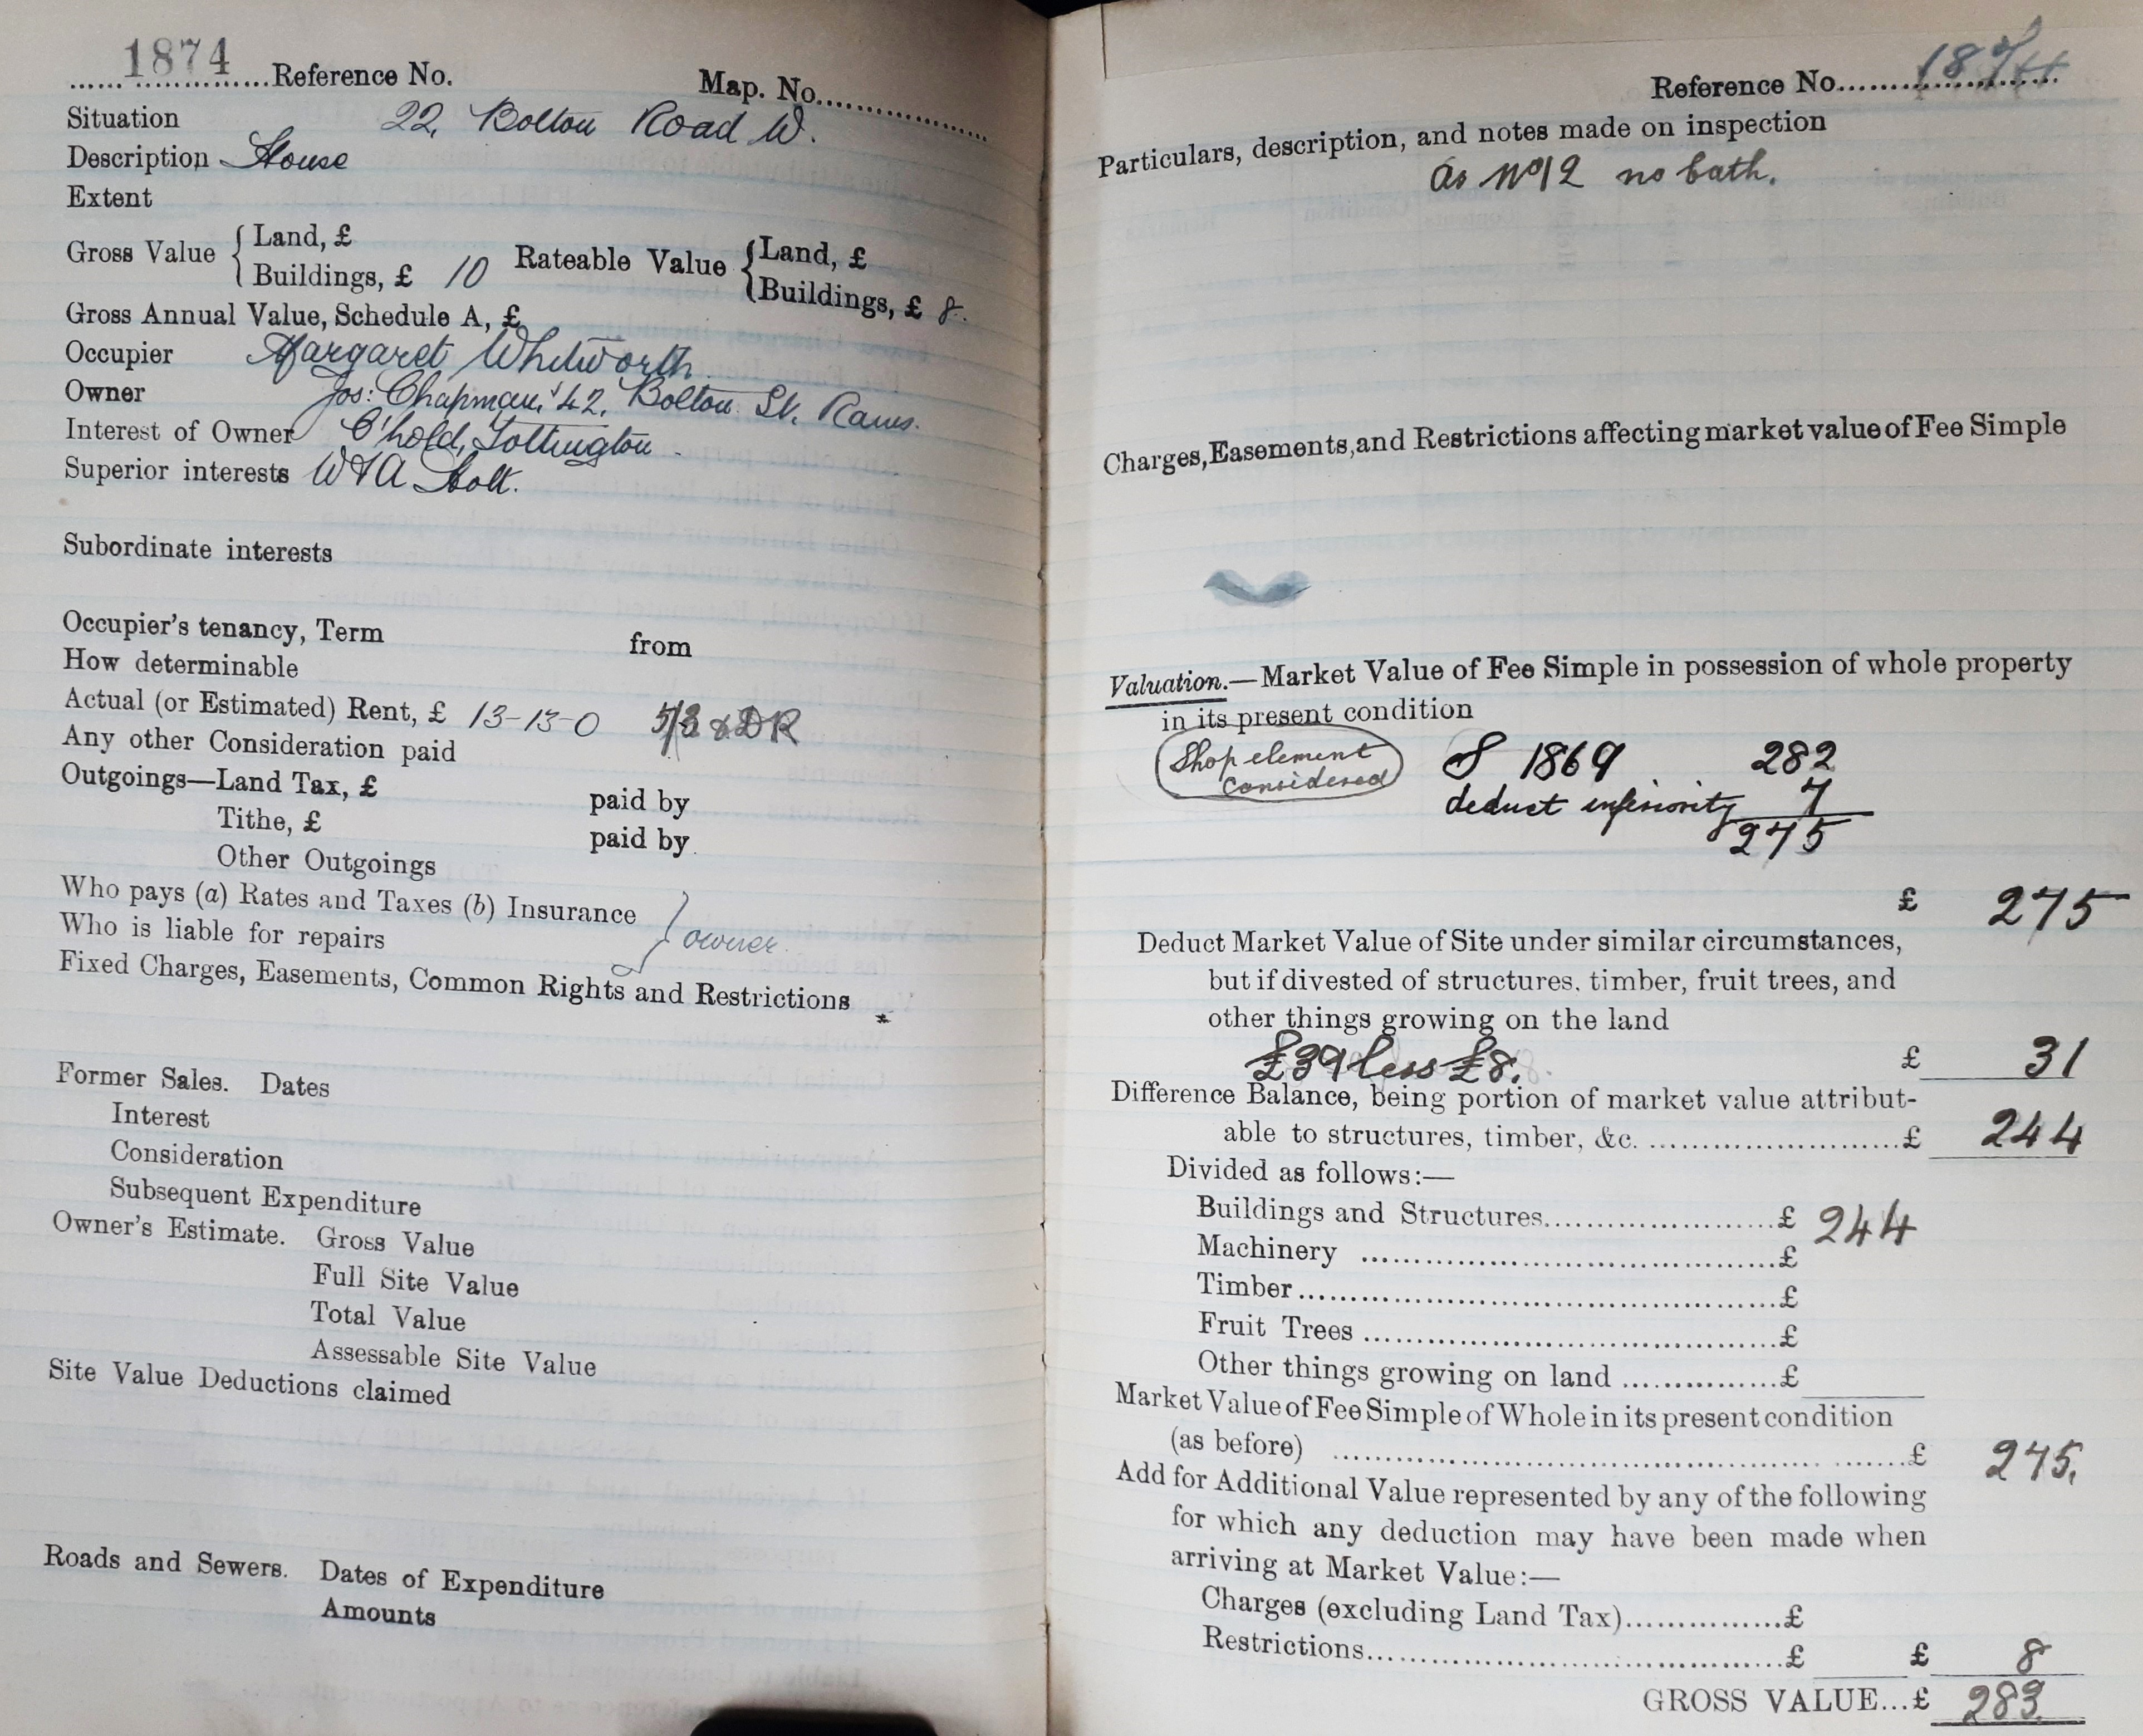 1874 Reference No. Map. No.
Situation 22, Bolton Road W.
Description House
Extent
Gross Value { Land, £
Buildings, £ 10 Rateable Value { Land, £
Buildings, £ 8.
Gross Annual Value, Schedule A, £
Occupier Margaret Whitworth
Owner Jos: Chapman, 42, Bolton St. Rams.
Interest of Owner C'hold, Tottington
Superior interests W & A Holt.
Subordinate interests
Occupier's tenancy, Term from
How determinable
Actual (or Estimated) Rent, £ 13-13-0 5/3 & DR
Any other Consideration paid
Outgoings—Land Tax, £ paid by
Tithe, £ paid by
Other Outgoings
Who pays (a) Rates and Taxes (b) Insurance
Who is liable for repairs } owner.
Fixed Charges, Easements, Common Rights and Restrictions
Former Sales. Dates
Interest
Consideration
Subsequent Expenditure
Owner's Estimate. Gross Value
Full Site Value
Total Value
Assessable Site Value
Site Value Deductions claimed
Roads and Sewers. Dates of Expenditure
Amounts
Reference No. 1874
Particulars, description, and notes made on inspection
As No 12 no bath.
Charges, Easements, and Restrictions affecting market value of Fee Simple
Valuation.—Market Value of Fee Simple in possession of whole property
in its present condition
Shop element
considered
1869 282
deduct inferiority 7
275
£ 275
Deduct Market Value of Site under similar circumstances,
but if divested of structures, timber, fruit trees, and
other things growing on the land
£39 less £8. £ 31
Difference Balance, being portion of market value attribut-
able to structures, timber, &c. £ 244
Divided as follows:—
Buildings and Structures £ 244
Machinery £
Timber £
Fruit Trees £
Other things growing on land £
Market Value of Fee Simple of Whole in its present condition
(as before) £ 275.
Add for Additional Value represented by any of the following
for which any deduction may have been made when
arriving at Market Value:—
Charges (excluding Land Tax) £
Restrictions £ £ 8
GROSS VALUE...£ 283.